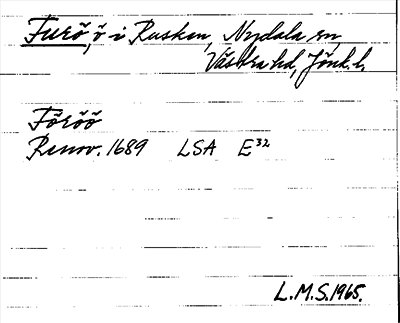 Furö, ö i Rusken, Nydala sn,
Västra hd, Jönk. l.
Föröö
Renov. 1689 LSA E32
L.M.S. 1965.